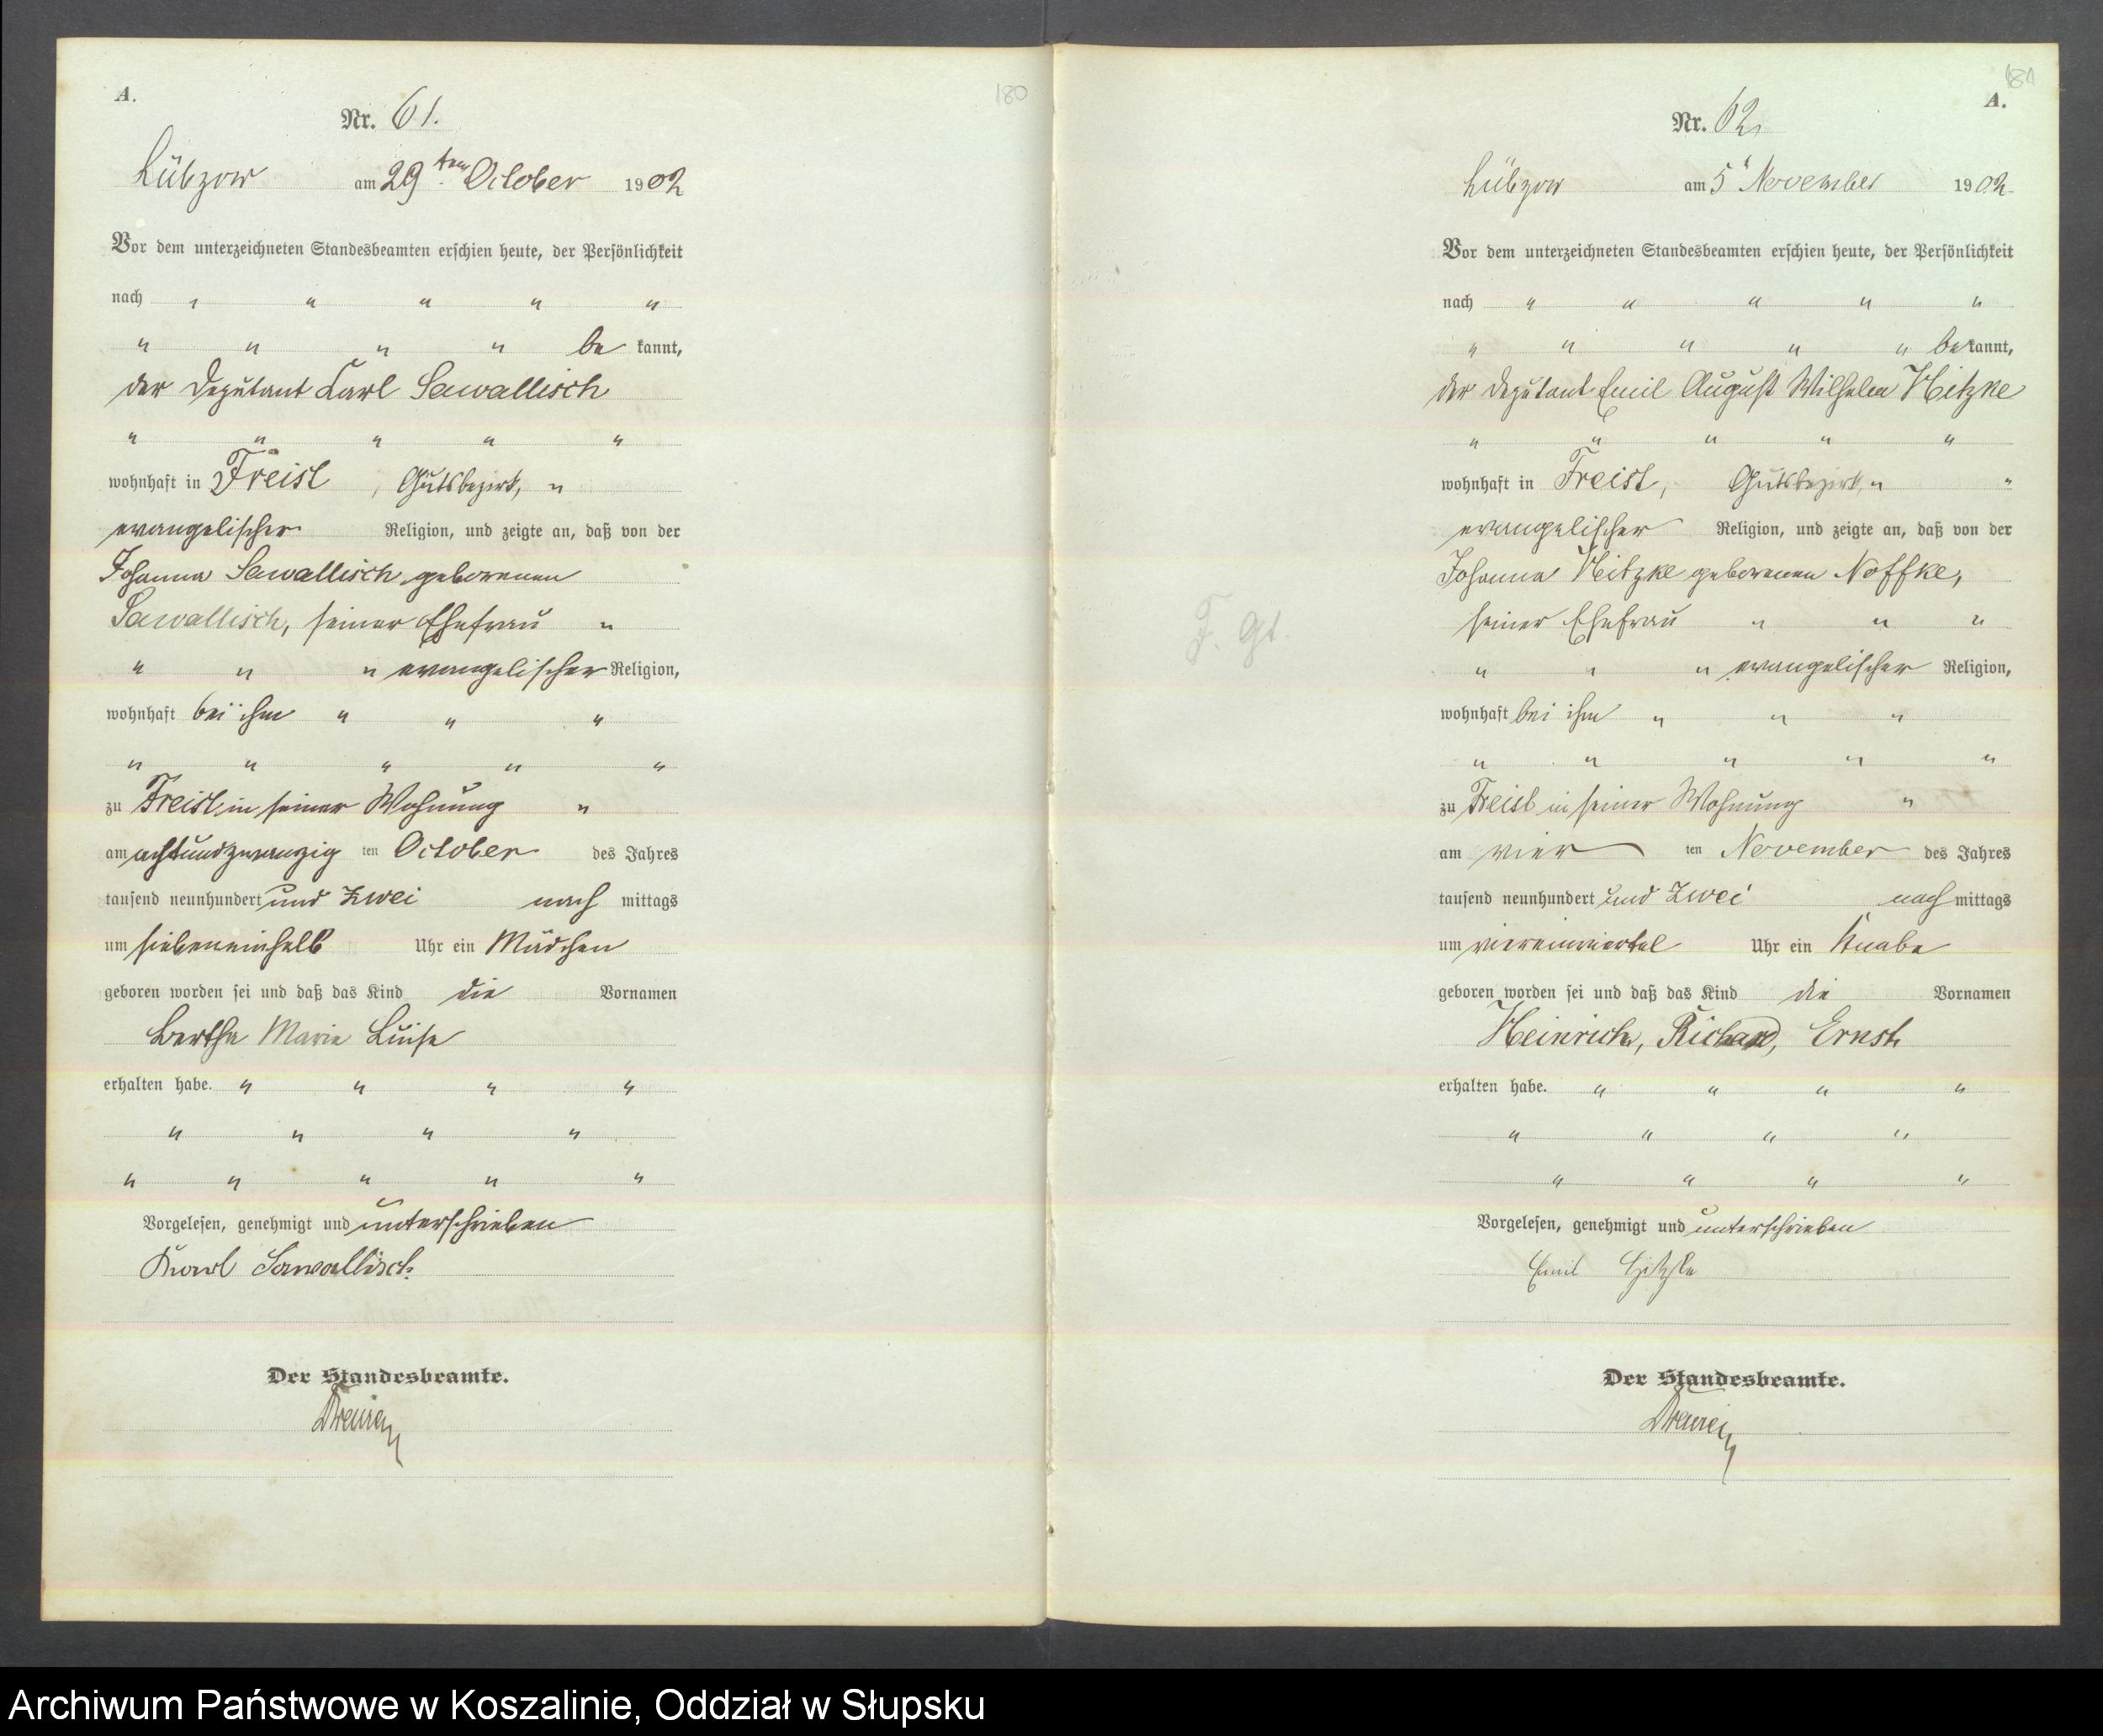 A.
180
Nr. 61.
Lübzow am 29ten October 1902
Vor dem unterzeichneten Standesbeamten erschien heute, der Persönlichkeit
nach " " " " "
" " " " be kannt,
der Deputant Carl Sawallisch
" " " " "
wohnhaft in Freist, Gutsbezirk, "
evangelischer Religion, und zeigte an, daß von der
Johanna Sawallisch geborenen
Sawallisch, seiner Ehefrau "
" " " evangelischer Religion,
wohnhaft bei ihm " " "
" " " " "
zu Freist in seiner Wohnung "
am achtundzwanzig ten October des Jahres
tausend neunhundert und zwei nach mittags
um siebeneinhalb Uhr ein Mädchen
geboren worden sei und daß das Kind die Vornamen
Bertha Marie Luise
erhalten habe. " " " "
" " " "
" " " " "
Vorgelesen, genehmigt und unterschrieben
Karl Sawallisch.
Der Standesbeamte.
181
A.
Nr. 62.
Lübzow am 5" November 1902
Vor dem unterzeichneten Standesbeamten erschien heute, der Persönlichkeit
nach " " " " "
" " " " " bekannt,
der Deputant Emil August Wilhelm Hitzke
" " " " "
wohnhaft in Freist, Gutsbezirk, " "
evangelischer Religion, und zeigte an, daß von der
Johanna Hitzke geborenen Noffke,
seiner Ehefrau " " "
" " " evangelischer Religion,
wohnhaft bei ihm " " "
" " " " "
zu Freist in seiner Wohnung "
am vier ten November des Jahres
tausend neunhundert und zwei nach mittags
um viereinviertel Uhr ein Knabe
geboren worden sei und daß das Kind die Vornamen
Heinrich, Richard, Ernst
erhalten habe. " " " "
" " " "
" " " "
Vorgelesen, genehmigt und unterschrieben
Emil Hitzke
Der Standesbeamte.
Archiwum Państwowe w Koszalinie, Oddział w Słupsku